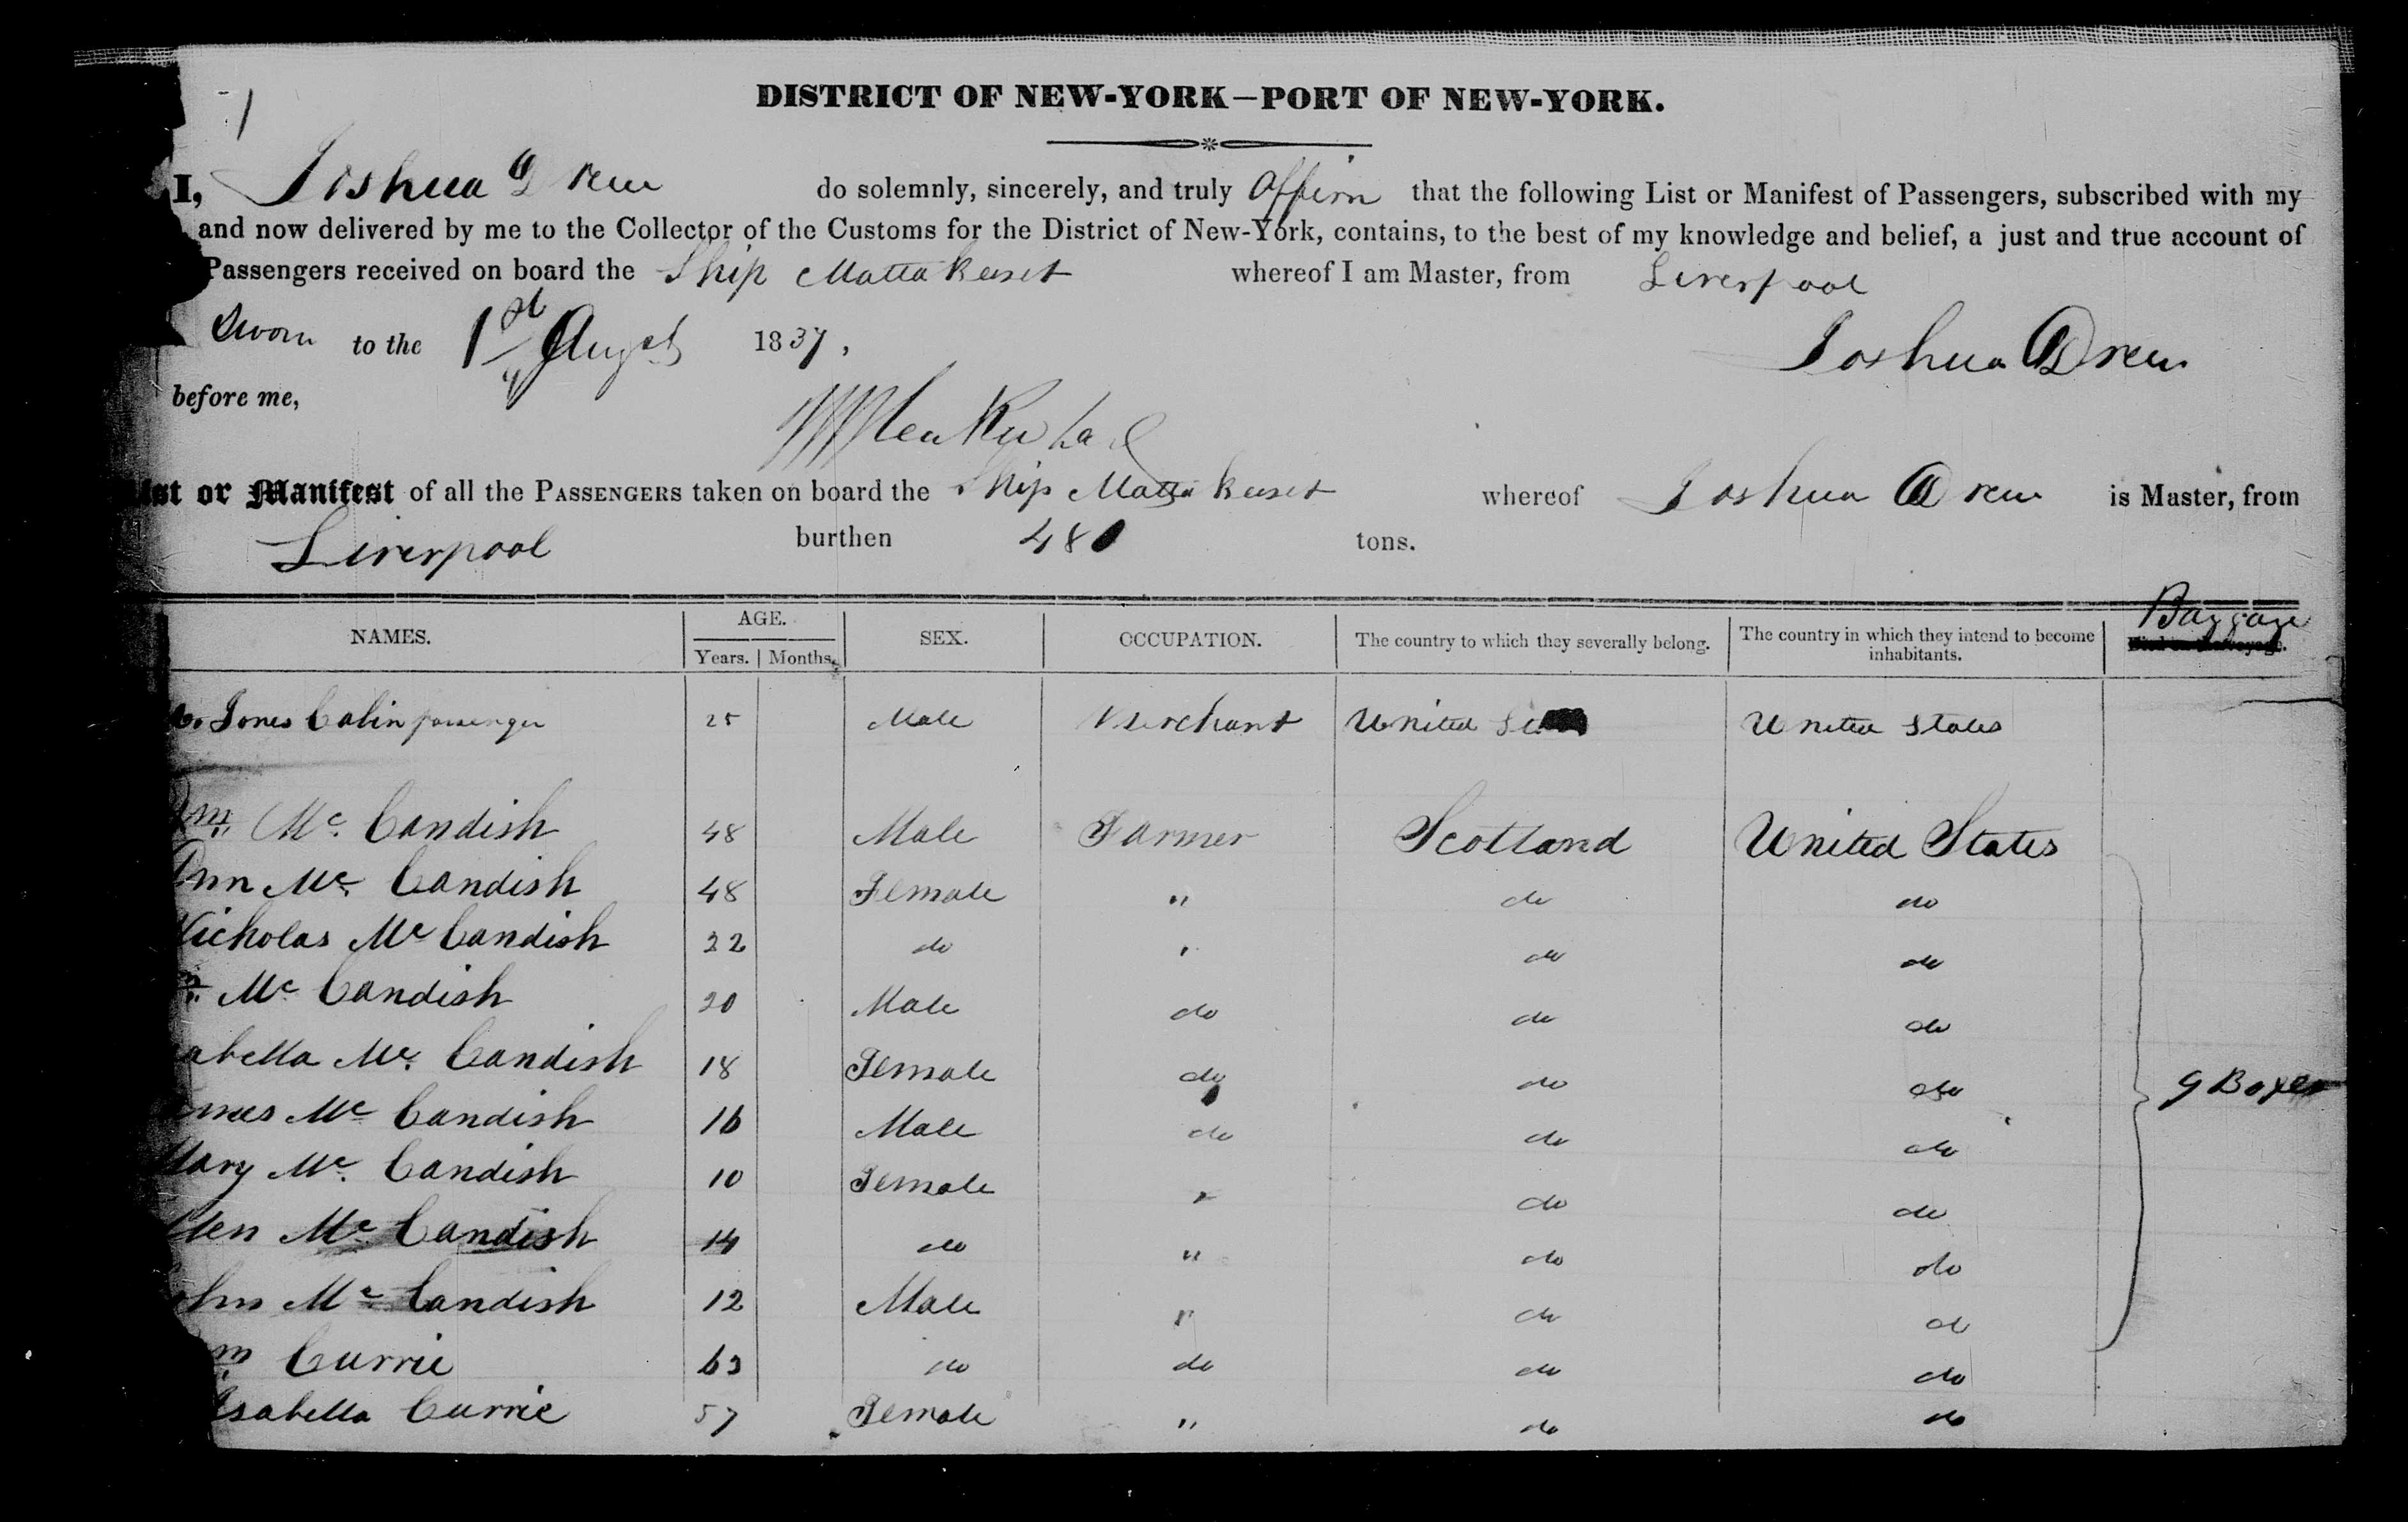 1
DISTRICT OF NEW-YORK—PORT OF NEW-YORK.
I, Joshua Drew do solemnly, sincerely, and truly Affirm that the following List or Manifest of Passengers, subscribed with my
and now delivered by me to the Collector of the Customs for the District of New-York, contains, to the best of my knowledge and belief, a just and true account of
Passengers received on board the Ship Mattakeeset whereof I am Master, from Liverpool
Sworn to the 1st Augst 1837,
Joshua Drew
before me,
ist or Manifest of all the PASSENGERS taken on board the Ship Mattakeeset whereof Joshua Drew is Master, from
Liverpool burthen 480 tons.
NAMES. AGE. Years. Months. SEX. OCCUPATION. The country to which they severally belong. The country in which they intend to become inhabitants. Baggage
Jones Cabin passenger 25 Male Merchant United United States
Wm. Mc. Candish 48 Male Farmer Scotland United States
Ann Mc. Candish 48 Female " do do
Nicholas Mc Candish 22 do " do do
m. Mc Candish 20 Male do do do
abella Mc. Candish 18 Female do do do
ames Mc Candish 16 Male do do do 9 Boxes
Mary Mc. Candish 10 Female " do do
llen Mc Candish 14 do " do do
ohn Mc Candish 12 Male " do do
m Currie 63 do do do do
Isabella Currie 57 Female " do do